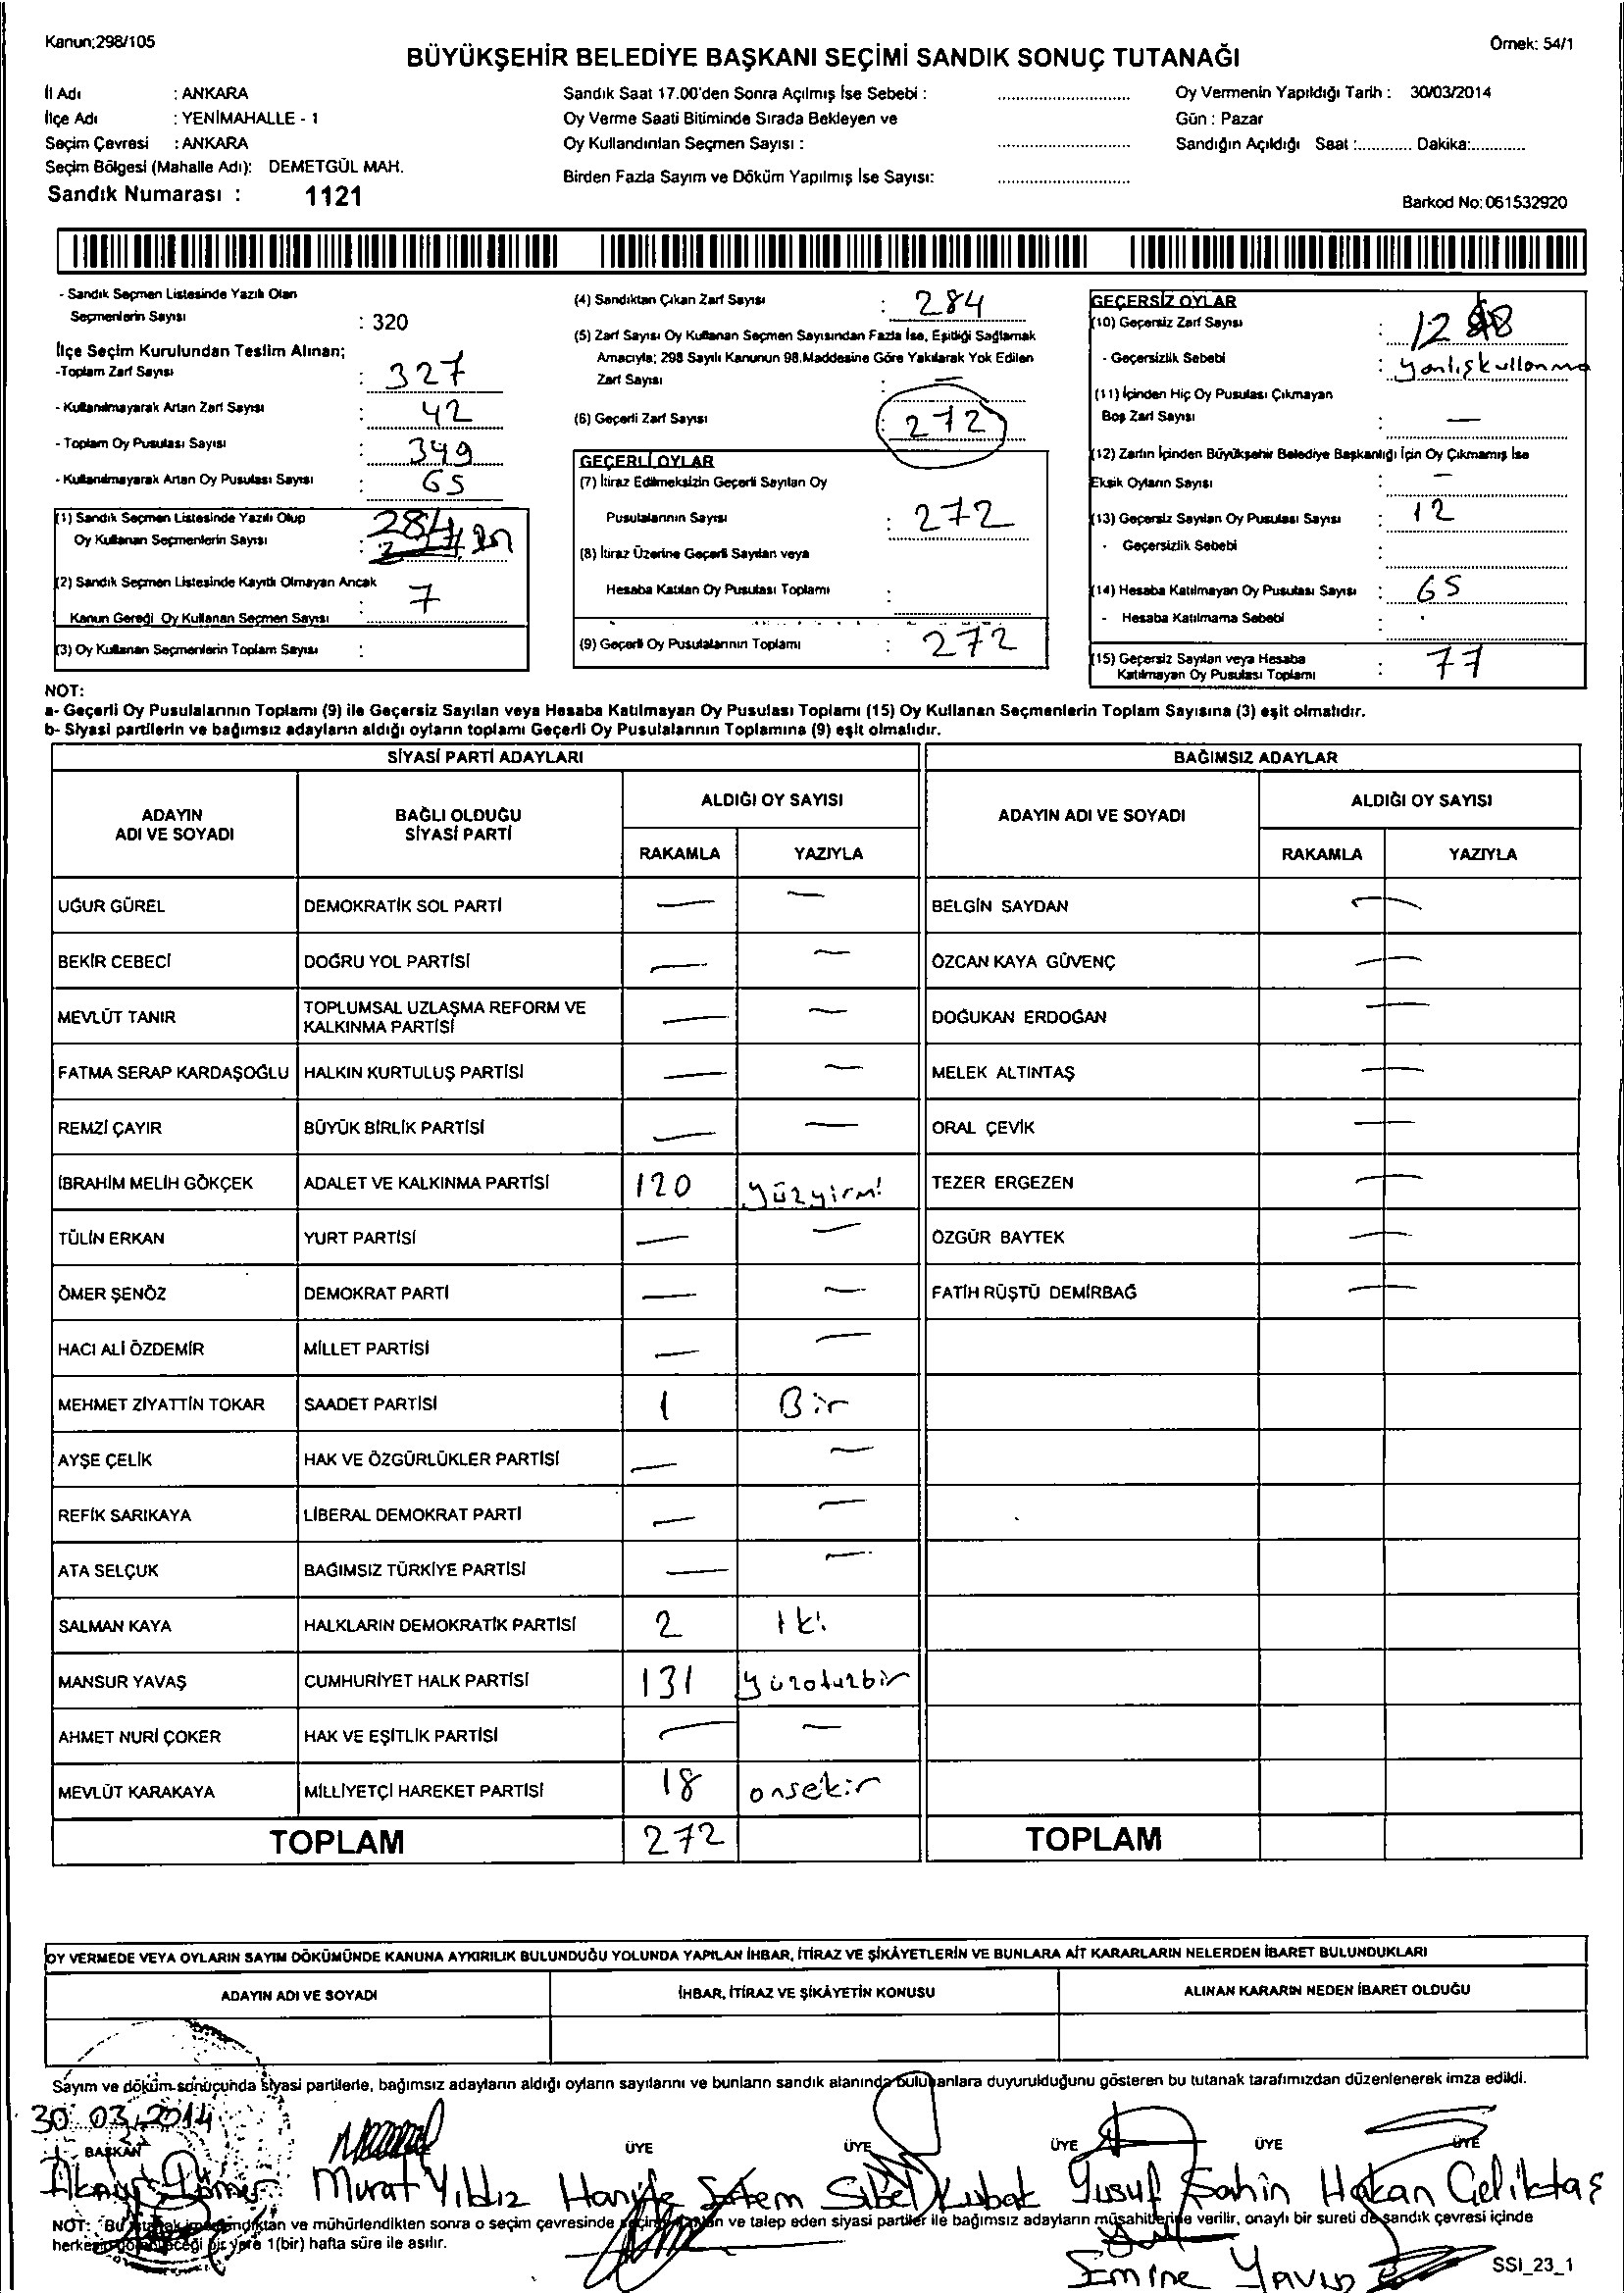 Kanun;298/105
Örnek: 54/1
BÜYÜKŞEHİR BELEDİYE BAŞKANI SEÇİMİ SANDIK SONUÇ TUTANAĞI
İl Adı : ANKARA
İlçe Adı : YENİMAHALLE - 1
Seçim Çevresi : ANKARA
Seçim Bölgesi (Mahalle Adı): DEMETGÜL MAH.
Sandık Numarası : 1121
Sandık Saat 17.00'den Sonra Açılmış İse Sebebi :
Oy Verme Saati Bitiminde Sırada Bekleyen ve
Oy Kullandırılan Seçmen Sayısı :
Birden Fazla Sayım ve Döküm Yapılmış İse Sayısı:
Oy Vermenin Yapıldığı Tarih : 30/03/2014
Gün : Pazar
Sandığın Açıldığı Saat :............ Dakika:............
Barkod No: 061532920
- Sandık Seçmen Listesinde Yazılı Olan
Seçmenlerin Sayısı : 320
İlçe Seçim Kurulundan Teslim Alınan;
-Toplam Zarf Sayısı : 327
- Kullanılmayarak Artan Zarf Sayısı : 42
- Toplam Oy Pusulası Sayısı : 349
- Kullanılmayarak Artan Oy Pusulası Sayısı : 65
(1) Sandık Seçmen Listesinde Yazılı Olup
Oy Kullanan Seçmenlerin Sayısı : 284
(2) Sandık Seçmen Listesinde Kayıtlı Olmayan Ancak
Kanun Gereği Oy Kullanan Seçmen Sayısı : 7
(3) Oy Kullanan Seçmenlerin Toplam Sayısı :
(4) Sandıktan Çıkan Zarf Sayısı : 284
(5) Zarf Sayısı Oy Kullanan Seçmen Sayısından Fazla İse, Eşitliği Sağlamak
Amacıyla; 298 Sayılı Kanunun 98.Maddesine Göre Yakılarak Yok Edilen
Zarf Sayısı : —
(6) Geçerli Zarf Sayısı : 272
GEÇERLİ OYLAR
(7) İtiraz Edilmeksizin Geçerli Sayılan Oy
Pusulalarının Sayısı : 272
(8) İtiraz Üzerine Geçerli Sayılan veya
Hesaba Katılan Oy Pusulası Toplamı :
(9) Geçerli Oy Pusulalarının Toplamı : 272
GEÇERSİZ OYLAR
(10) Geçersiz Zarf Sayısı : 12
- Geçersizlik Sebebi : yanlış kullanma
(11) İçinden Hiç Oy Pusulası Çıkmayan
Boş Zarf Sayısı : —
(12) Zarfın İçinden Büyükşehir Belediye Başkanlığı İçin Oy Çıkmamış İse
Eksik Oyların Sayısı : —
(13) Geçersiz Sayılan Oy Pusulası Sayısı : 12
- Geçersizlik Sebebi :
(14) Hesaba Katılmayan Oy Pusulası Sayısı : 65
- Hesaba Katılmama Sebebi :
(15) Geçersiz Sayılan veya Hesaba
Katılmayan Oy Pusulası Toplamı : 77
NOT:
a- Geçerli Oy Pusulalarının Toplamı (9) ile Geçersiz Sayılan veya Hesaba Katılmayan Oy Pusulası Toplamı (15) Oy Kullanan Seçmenlerin Toplam Sayısına (3) eşit olmalıdır.
b- Siyasi partilerin ve bağımsız adayların aldığı oyların toplamı Geçerli Oy Pusulalarının Toplamına (9) eşit olmalıdır.
SİYASİ PARTİ ADAYLARI
BAĞIMSIZ ADAYLAR
ADAYIN ADI VE SOYADI
BAĞLI OLDUĞU SİYASİ PARTİ
ALDIĞI OY SAYISI
RAKAMLA YAZIYLA
ADAYIN ADI VE SOYADI
ALDIĞI OY SAYISI
RAKAMLA YAZIYLA
UĞUR GÜREL DEMOKRATİK SOL PARTİ — — BELGİN SAYDAN —
BEKİR CEBECİ DOĞRU YOL PARTİSİ — — ÖZCAN KAYA GÜVENÇ —
MEVLÜT TANIR TOPLUMSAL UZLAŞMA REFORM VE KALKINMA PARTİSİ — — DOĞUKAN ERDOĞAN —
FATMA SERAP KARDAŞOĞLU HALKIN KURTULUŞ PARTİSİ — — MELEK ALTINTAŞ —
REMZİ ÇAYIR BÜYÜK BİRLİK PARTİSİ — — ORAL ÇEVİK —
İBRAHİM MELİH GÖKÇEK ADALET VE KALKINMA PARTİSİ 120 yüzyirmi TEZER ERGEZEN —
TÜLİN ERKAN YURT PARTİSİ — — ÖZGÜR BAYTEK —
ÖMER ŞENÖZ DEMOKRAT PARTİ — — FATİH RÜŞTÜ DEMİRBAĞ —
HACI ALİ ÖZDEMİR MİLLET PARTİSİ — —
MEHMET ZİYATTİN TOKAR SAADET PARTİSİ 1 Bir
AYŞE ÇELİK HAK VE ÖZGÜRLÜKLER PARTİSİ — —
REFİK SARIKAYA LİBERAL DEMOKRAT PARTİ — —
ATA SELÇUK BAĞIMSIZ TÜRKİYE PARTİSİ — —
SALMAN KAYA HALKLARIN DEMOKRATİK PARTİSİ 2 iki
MANSUR YAVAŞ CUMHURİYET HALK PARTİSİ 131 yüzotuzbir
AHMET NURİ ÇOKER HAK VE EŞİTLİK PARTİSİ — —
MEVLÜT KARAKAYA MİLLİYETÇİ HAREKET PARTİSİ 18 onsekir
TOPLAM 272 TOPLAM
OY VERMEDE VEYA OYLARIN SAYIM DÖKÜMÜNDE KANUNA AYKIRILIK BULUNDUĞU YOLUNDA YAPILAN İHBAR, İTİRAZ VE ŞİKÂYETLERİN VE BUNLARA AİT KARARLARIN NELERDEN İBARET BULUNDUKLARI
ADAYIN ADI VE SOYADI İHBAR, İTİRAZ VE ŞİKÂYETİN KONUSU ALINAN KARARIN NEDEN İBARET OLDUĞU
Sayım ve döküm sonucunda siyasi partilerle, bağımsız adayların aldığı oyların sayılarını ve bunların sandık alanında bulunanlara duyurulduğunu gösteren bu tutanak tarafımızdan düzenlenerek imza edildi.
30.03.2014
BAŞKAN ÜYE ÜYE ÜYE ÜYE ÜYE
Murat Yıldız Hanife Sibel Kubak Yusuf Şahin Hakan Çeliktaş
NOT: Bu ve mühürlendikten sonra o seçim çevresinde ve talep eden siyasi partiler ile bağımsız adayların müşahitlerine verilir, onaylı bir sureti de sandık çevresi içinde
herkesin göreceği bir yere 1(bir) hafta süre ile asılır.
Emine Yavuz
SSI_23_1